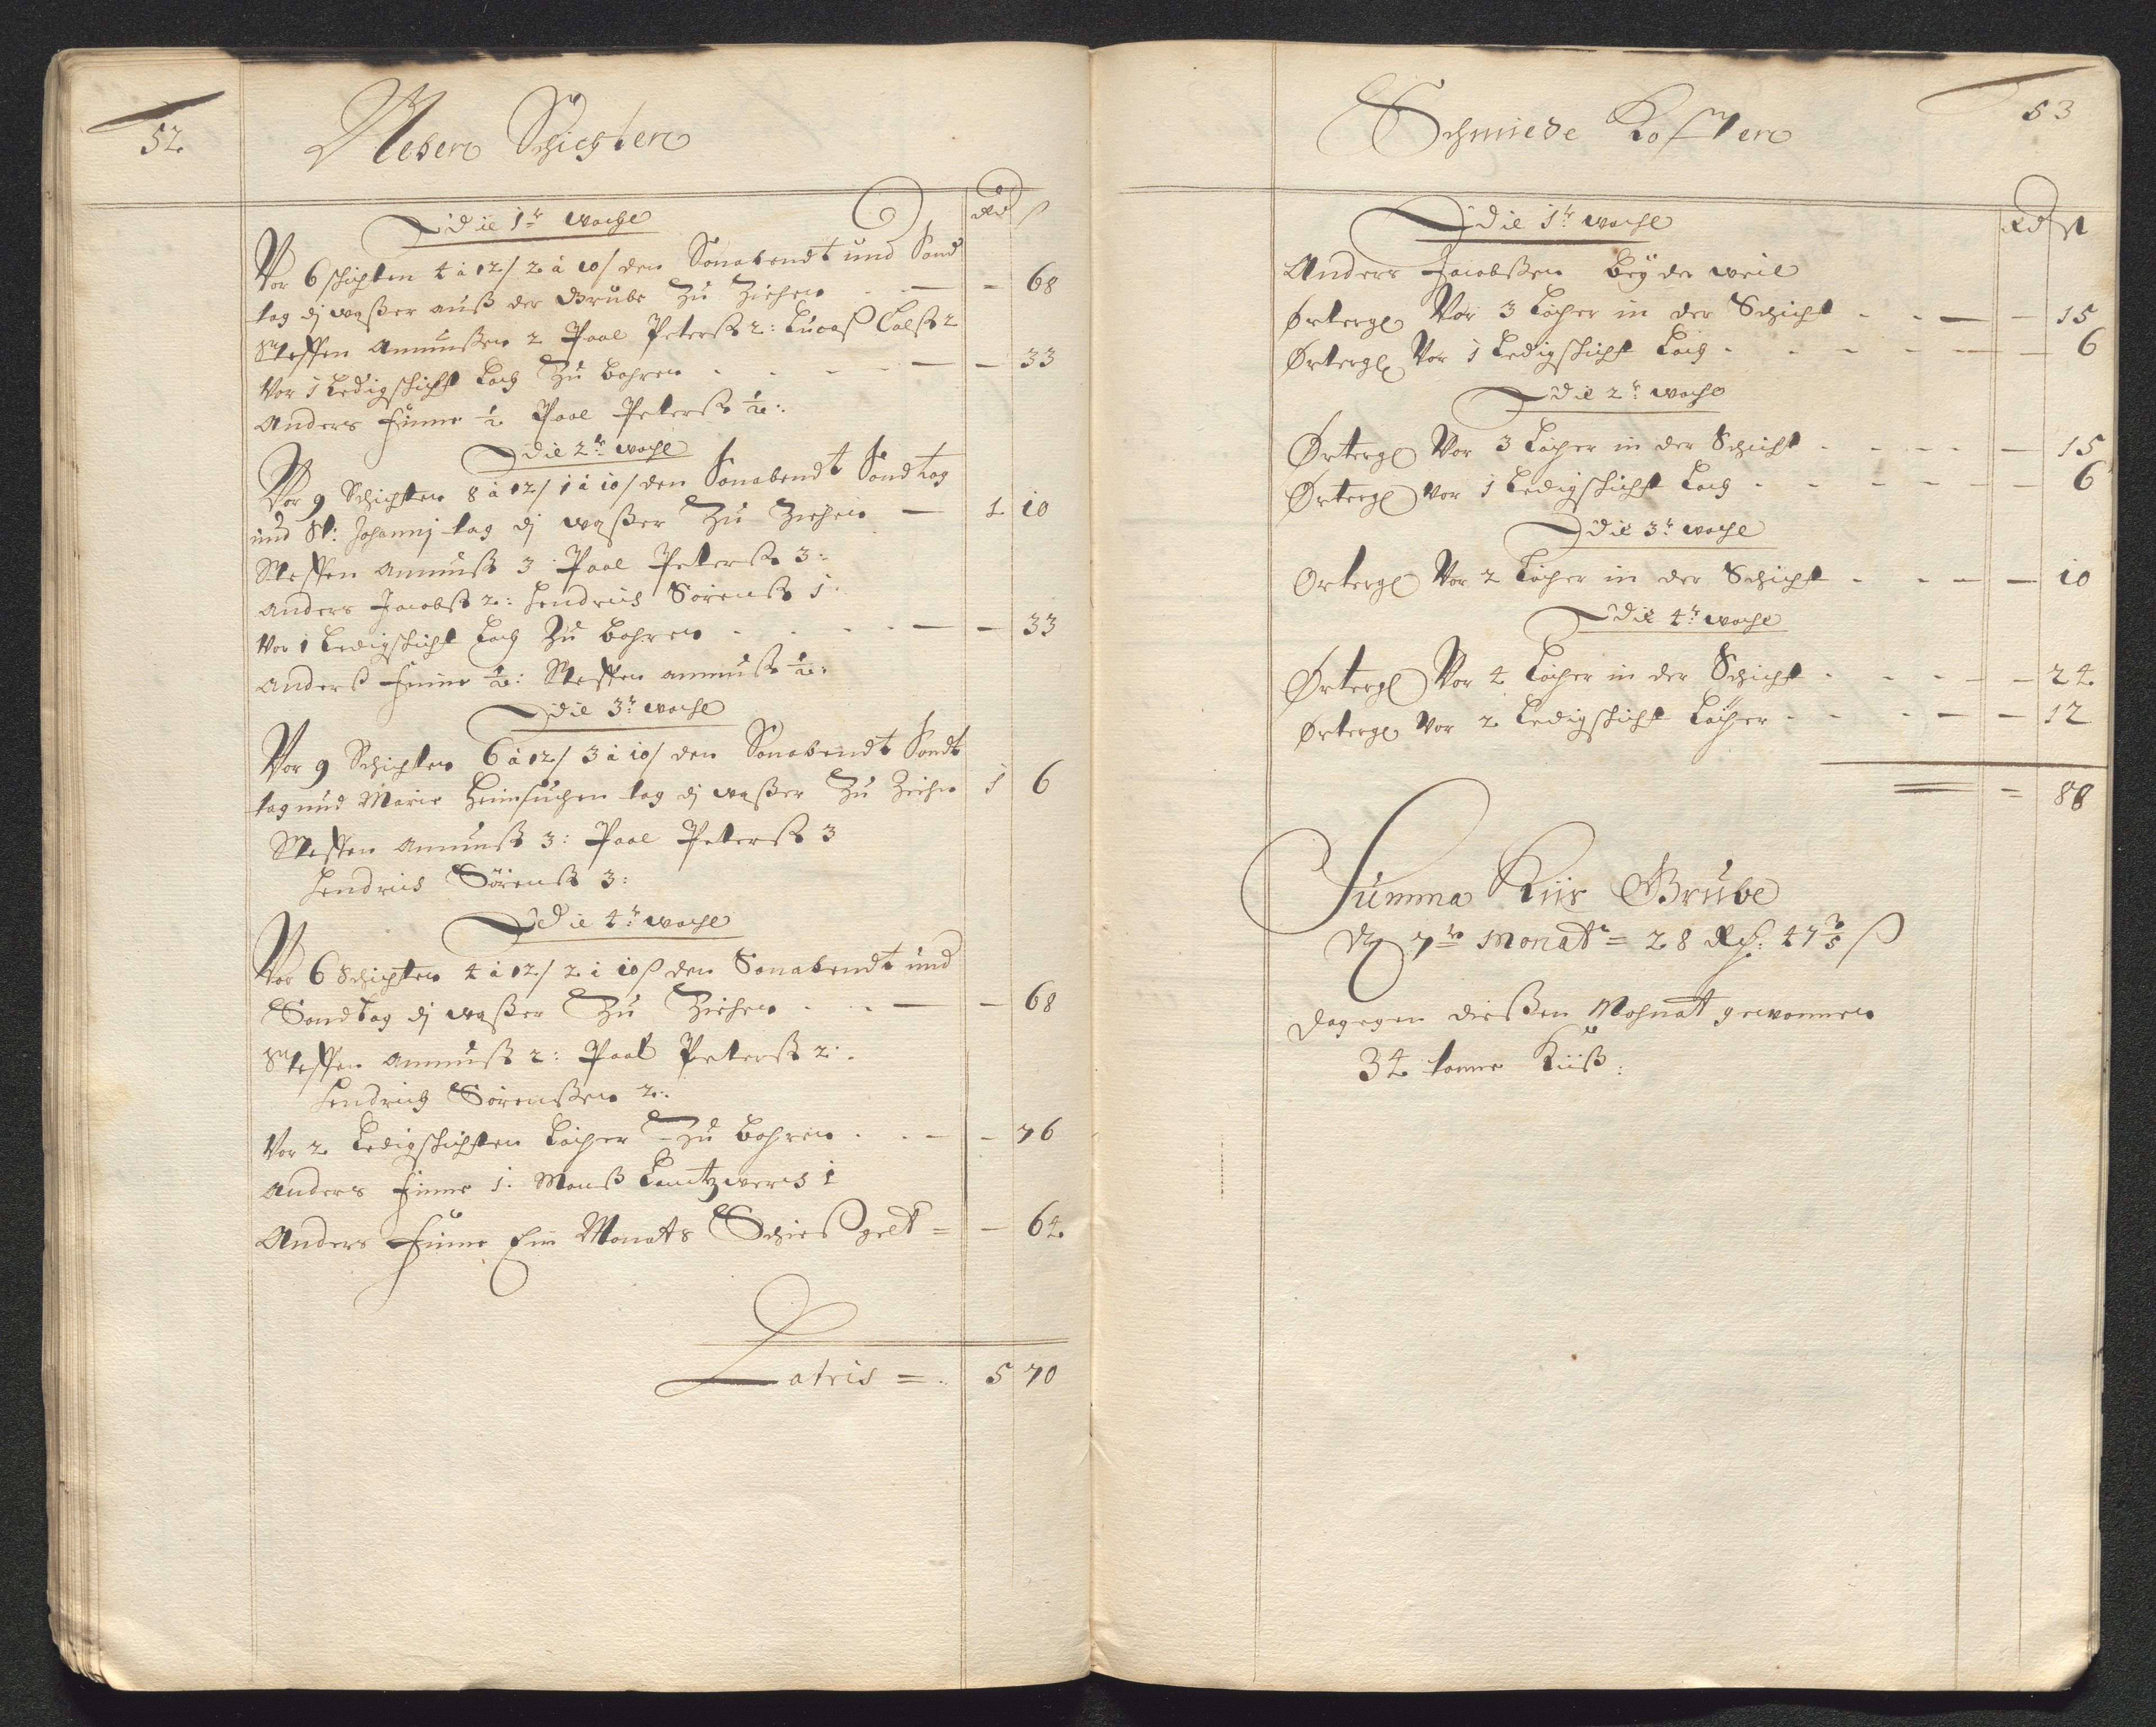 52.
Neben Schichten
Rd ß
Die 1te woche
Vor 6 schichten 4 à 12/ 2 à 10/ den Sonabendt und Sond
tag dz waßer auß der Grube Zu Ziehen - - - 68
Steffen Amunßen 2 Paal Peterß 2: Lucaß Calß 2
Vor 1 Ledigschicht Loch Zu bohren - - - - 33
Anders Finne ½ Paal Peterß ½:
Die 2te woche
Vor 9 Schichten 8 à 12/ 1 à 10/ den Sonabendt Sondtag
und St: Johannj tag dj waßer Zu Ziehen - 1 10
Steffen Amunß 3 Paal Peterß 3:
Anders Jacobß 2: Hendrich Sörenß 1:
Vor 1 Ledigschicht Loch Zu bohren - - - - 33
Anderß Finne ½: Steffen Amunß ½:
Die 3te woche
Vor 9 Schichten 6 à 12/ 3 à 10/ den Sonabendt Sondt
tag und Marie Heimsuchen tag dj waßer Zu Ziehn 1 6
Steffen Amunß 3: Paal Peterß 3
Hendrich Sörenß 3:
Die 4te woche
Vor 6 Schichten 4 à 12/ 2 à 10 ß den Sonabendt und
Sondtag dj waßer Zu Ziehen - - - 68
Steffen Amunß 2: Paal Peterß 2:
Hendrich Sörenßen 2:
Vor 2 Ledigschichten Löcher Zu bohren - - - 76
Anders Finne 1: Monß 1
Anders Finne Ein Monats Schießgelt = - 64
Latris = 5 70
53
Schmiede Kosten
Rd ß
Die 1te woche
Anders Jacobßen Bey der weil
Örtergl Vor 3 Löcher in der Schicht - - - - 15
Örtergl Vor 1 Ledigschicht Loch - - - - 6
Die 2te woche
Örtergl Vor 3 Löcher in der Schicht - - - - 15
Örtergl Vor 1 Ledigschicht Loch - - - - 6
Die 3te woche
Ortergl Vor 2 Löcher in der Schicht - - - - 10
Die 4te woche
Örtergl Vor 4 Löcher in der Schicht - - - - 24
Örtergl Vor 2 Ledigschicht Löcher - - - - 12
= 88
Summa Kiis Grube
7te Monat = 28 Rd: 47 3/5 ß
Dagegen dießen Mohnat gewonnen
34 tonne Kiiß: